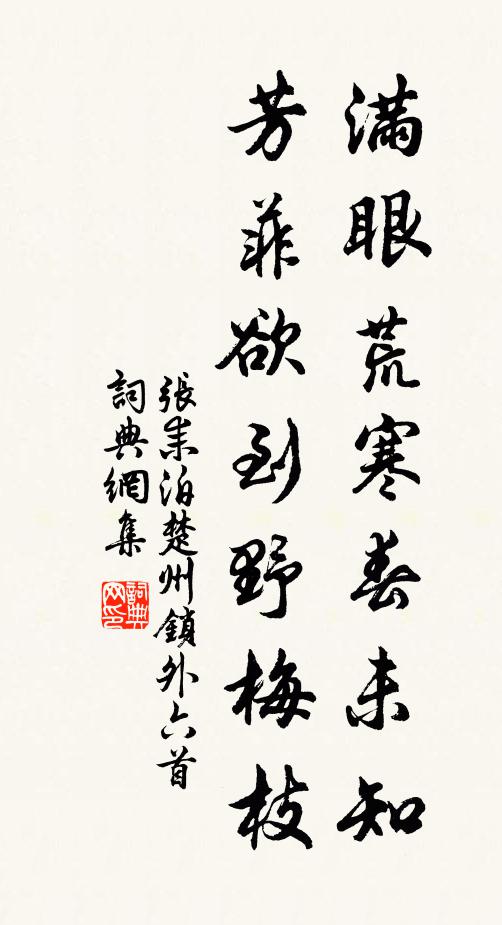 滿眼荒寒春未知
芳菲欲到野梅枝
張耒泊楚州鎖外六首
詞典網集
詞典网印